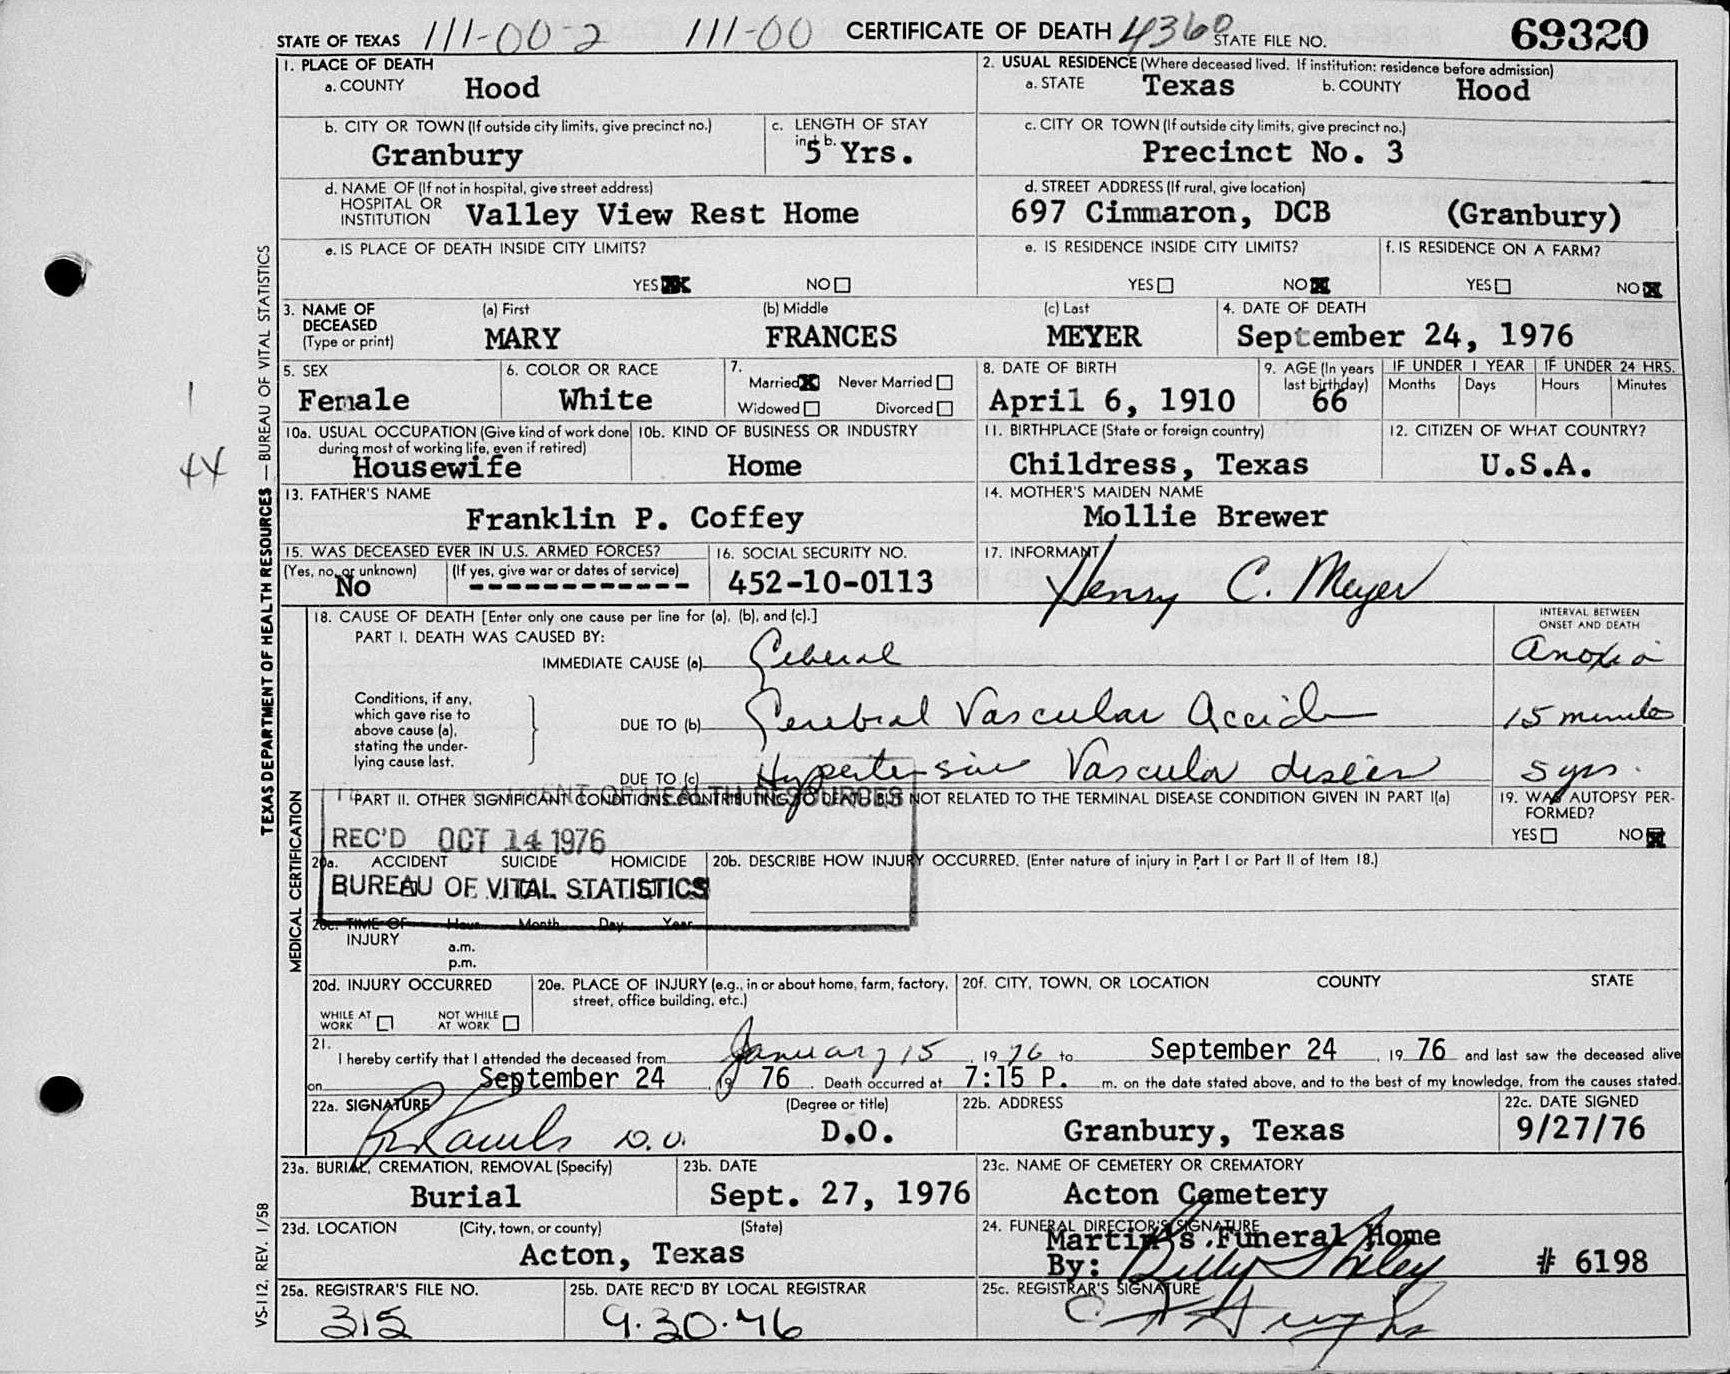 STATE OF TEXAS 111-00-2 111-00 CERTIFICATE OF DEATH 4360 STATE FILE NO. 69320
1. PLACE OF DEATH
a. COUNTY Hood
2. USUAL RESIDENCE (Where deceased lived. If institution: residence before admission)
a. STATE Texas b. COUNTY Hood
b. CITY OR TOWN (If outside city limits, give precinct no.)
Granbury
c. LENGTH OF STAY
in 1 b. 5 Yrs.
c. CITY OR TOWN (If outside city limits, give precinct no.)
Precinct No. 3
d. NAME OF (If not in hospital, give street address)
HOSPITAL OR
INSTITUTION Valley View Rest Home
d. STREET ADDRESS (If rural, give location)
697 Cimmaron, DCB (Granbury)
e. IS PLACE OF DEATH INSIDE CITY LIMITS?
YES NO
e. IS RESIDENCE INSIDE CITY LIMITS?
YES NO
f. IS RESIDENCE ON A FARM?
YES NO
3. NAME OF
DECEASED
(Type or print)
(a) First
MARY
(b) Middle
FRANCES
(c) Last
MEYER
4. DATE OF DEATH
September 24, 1976
5. SEX
Female
6. COLOR OR RACE
White
7.
Married Never Married
Widowed Divorced
8. DATE OF BIRTH
April 6, 1910
9. AGE (In years
last birthday)
66
IF UNDER 1 YEAR
Months Days
IF UNDER 24 HRS.
Hours Minutes
10a. USUAL OCCUPATION (Give kind of work done
during most of working life, even if retired)
Housewife
10b. KIND OF BUSINESS OR INDUSTRY
Home
11. BIRTHPLACE (State or foreign country)
Childress, Texas
12. CITIZEN OF WHAT COUNTRY?
U.S.A.
13. FATHER'S NAME
Franklin P. Coffey
14. MOTHER'S MAIDEN NAME
Mollie Brewer
15. WAS DECEASED EVER IN U.S. ARMED FORCES?
(Yes, no, or unknown)
No
(If yes, give war or dates of service)
------------
16. SOCIAL SECURITY NO.
452-10-0113
17. INFORMANT
Henry C. Meyer
18. CAUSE OF DEATH [Enter only one cause per line for (a), (b), and (c).]
PART I. DEATH WAS CAUSED BY:
INTERVAL BETWEEN
ONSET AND DEATH
IMMEDIATE CAUSE (a) anoxia
Conditions, if any,
which gave rise to
above cause (a),
stating the under-
lying cause last.
DUE TO (b) Vascular 15 minutes
DUE TO (c) Hypertensive Vascular 5 yrs.
PART II. OTHER SIGNIFICANT CONDITIONS CONTRIBUTING TO DEATH BUT NOT RELATED TO THE TERMINAL DISEASE CONDITION GIVEN IN PART I(a)
19. WAS AUTOPSY PER-
FORMED?
YES NO
MENT OF HEALTH RESOURCES
REC'D OCT 14 1976
BUREAU OF VITAL STATISTICS
20a. ACCIDENT SUICIDE HOMICIDE
20b. DESCRIBE HOW INJURY OCCURRED. (Enter nature of injury in Part I or Part II of Item 18.)
20c. TIME OF Hour Month Day Year
INJURY
a.m.
p.m.
20d. INJURY OCCURRED
WHILE AT
WORK
NOT WHILE
AT WORK
20e. PLACE OF INJURY (e.g., in or about home, farm, factory,
street, office building, etc.)
20f. CITY, TOWN, OR LOCATION COUNTY STATE
21.
I hereby certify that I attended the deceased from January 15, 1976 to September 24, 19 76 and last saw the deceased alive
on September 24, 19 76. Death occurred at 7:15 P. m. on the date stated above, and to the best of my knowledge, from the causes stated.
22a. SIGNATURE
D.O.
(Degree or title)
D.O.
22b. ADDRESS
Granbury, Texas
22c. DATE SIGNED
9/27/76
23a. BURIAL, CREMATION, REMOVAL (Specify)
Burial
23b. DATE
Sept. 27, 1976
23c. NAME OF CEMETERY OR CREMATORY
Acton Cemetery
23d. LOCATION (City, town, or county) (State)
Acton, Texas
24. FUNERAL DIRECTOR'S SIGNATURE
Martin's Funeral Home
By: Billy # 6198
25a. REGISTRAR'S FILE NO.
315
25b. DATE REC'D BY LOCAL REGISTRAR
9.30.76
25c. REGISTRAR'S SIGNATURE
TEXAS DEPARTMENT OF HEALTH RESOURCES — BUREAU OF VITAL STATISTICS
MEDICAL CERTIFICATION
VS-112, REV. 1/58